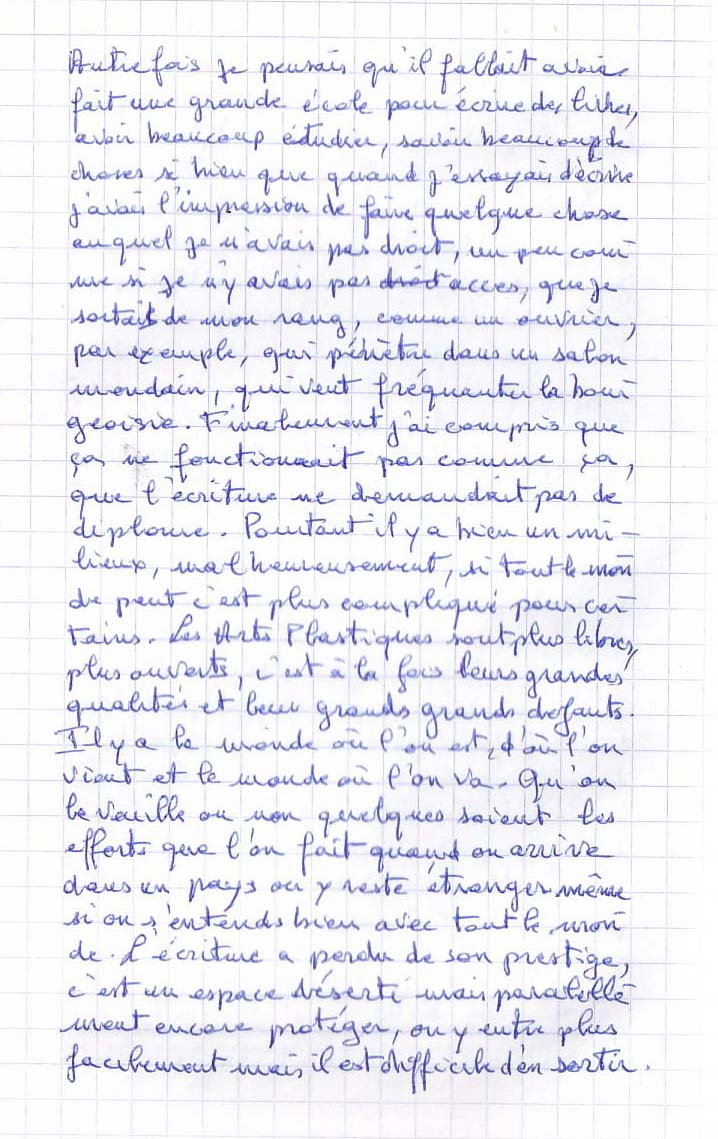 Autrefois je pensais qu'il fallait avoir
fait une grande école pour écrire des livres,
avoir beaucoup étudier, savoir beaucoup de
choses si bien que quand j'essayais d'écrire
j'avais l'impression de faire quelque chose
auquel je n'avais pas droit, un peu com
me si je n'y avais pas droit acces, que je
sortais de mon rang, comme un ouvrier,
par exemple, qui pénètre dans un salon
mondain, qui veut fréquanter la bour
geoisie. Finalement j'ai compris que
ça ne fonctionnait pas comme ça,
que l'écriture ne demandait pas de
diplome. Pourtant il y a bien un mi-
lieux, malheureusement, si tout le mon
de peut c'est plus compliqué pour cer
tains. Les Arts Plastiques sont plus libres,
plus ouverts, c'est à la fois leurs grandes
qualités et leur grands grands défauts.
Il y a le monde où l'on est, d'où l'on
vient et le monde où l'on va. Qu'on
le veuille ou non quelques soient les
efforts que l'on fait quand on arrive
dans un pays on y reste étranger même
si on s'entends bien avec tout le mon
de. L'écriture a perdu de son prestige,
c'est un espace déserté mais parallélé
ment encore protéger, on y entre plus
facilement mais il est difficile d'en sortir.